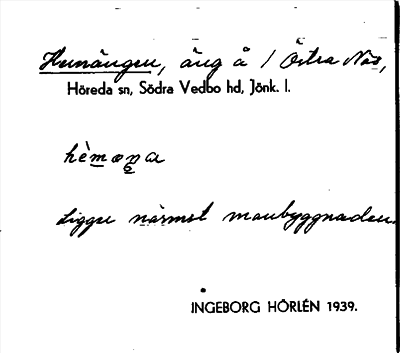 Hemängen, äng å / Östra Näs,
Höreda sn, Södra Vedbo hd, Jönk. l.
hèmæŋa
Ligger närmst manbyggnaden.
INGEBORG HÖRLÉN 1939.